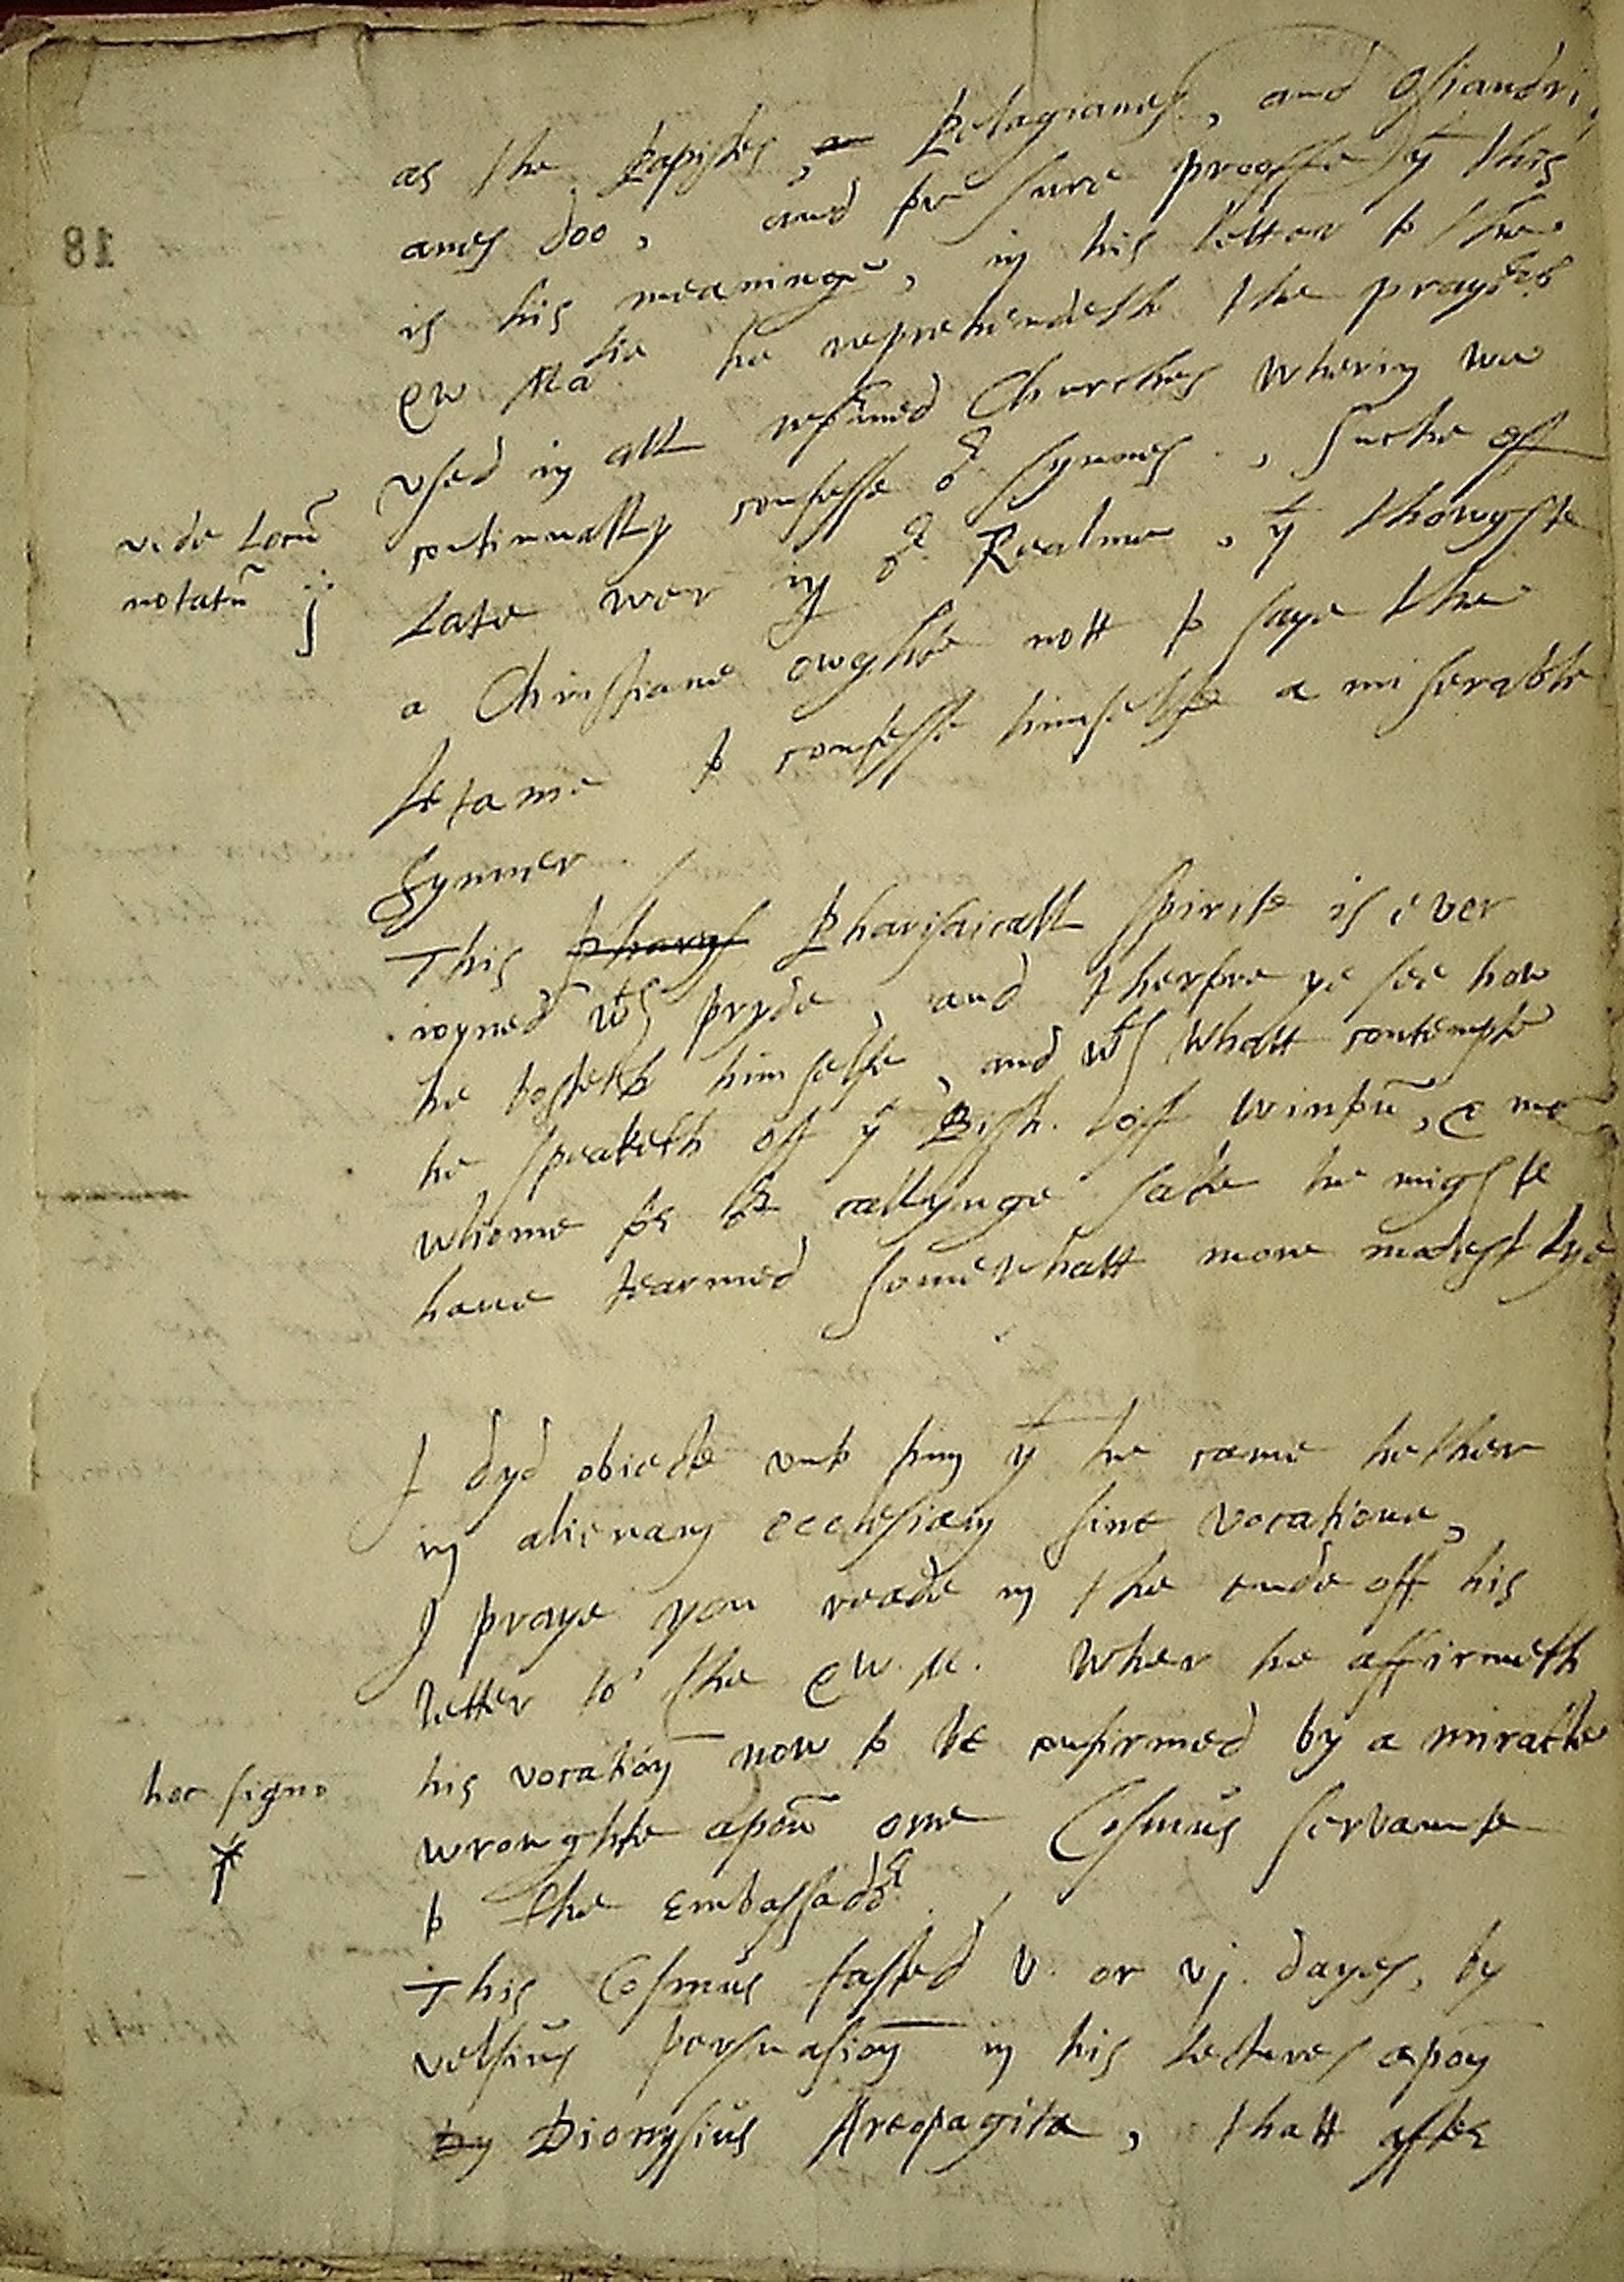 as the Papistes, a Pelagianes, and Osiandri,
anes doo, and for sure prooffe yt this
is his meaninge, in his letter to the
Qu Matie he reprehendeth the prayers
vsed in all refurmed Churches wherin we
continually confesse or synnes, suche off
vide locū
notatū j
late wer in or Realme, yt thowghte
a Christiane owghte nott to saye the
letanie to confesse himselfe a miserable
Synner.
This pharis Pharisaicall spirite is ever
ioyned wth pryde, and therfore ye see how
he bosteth himselfe, and wth whatt contempte
he speaketh off ye Bish. off Winton, & me
whome for or callynge sake he mighte
haue tearmed somewhatt more modestlye
I dyd obiecte vnto him yt he came hether
in alienam ecclesiam sine vocatione,
I praye you reade in the ende off his
letter to the Qu. M. wher he affirmeth
his vocation now to be confirmed by a miracle
hoc signo
wroughte apon one Cosmus servaunte
to the Embassador.
This Cosmus fasted v. or vj. dayes, by
velsius perswasion in his lectures apon
by Dionysius Areopagita, thatt after
18